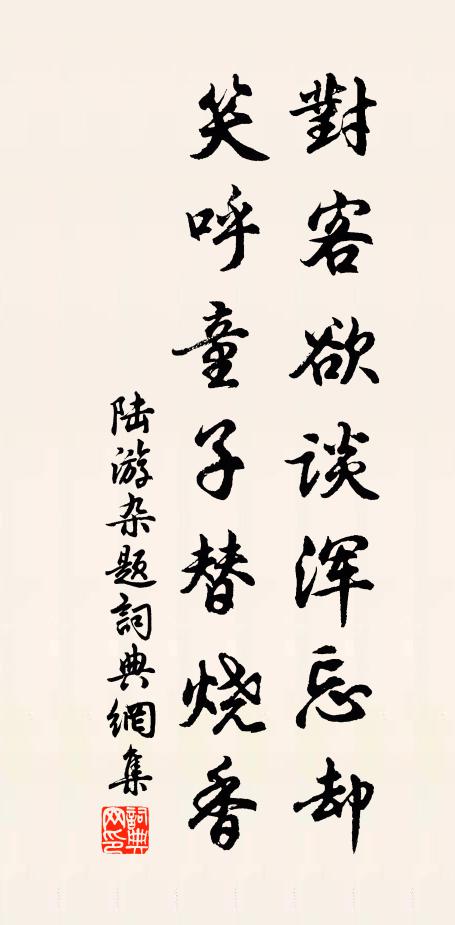 對客欲谈浑忘却
笑呼童子替烧香
陆游杂题詞典網集
詞典網印